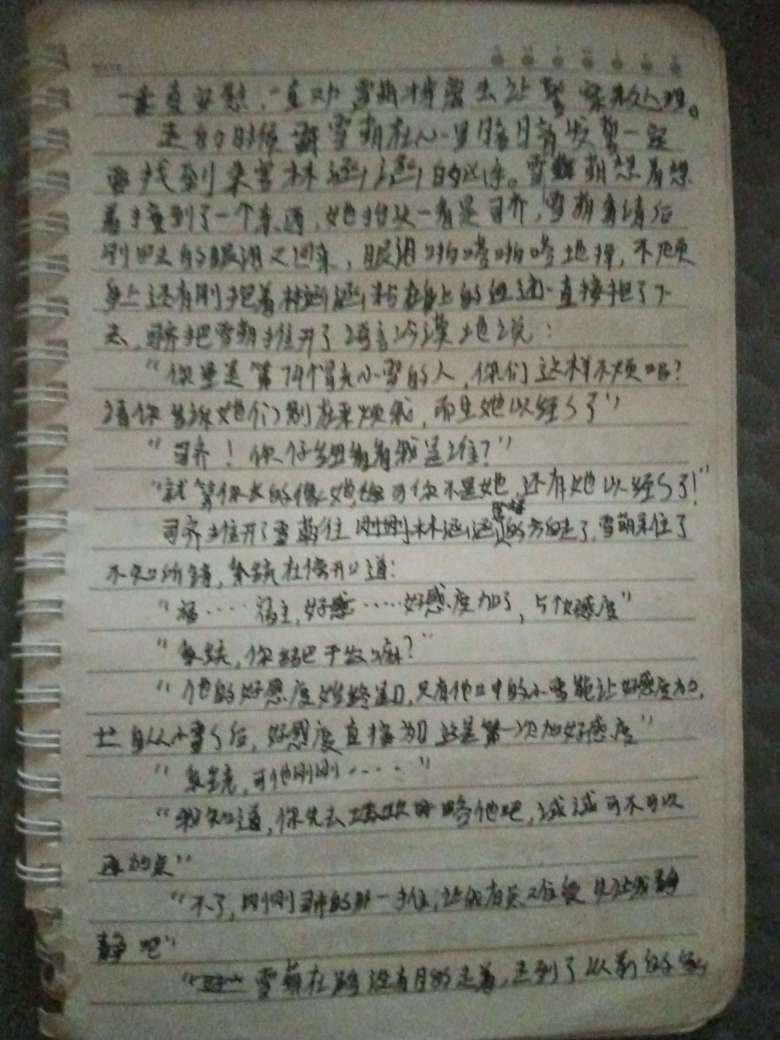 一直安慰,一直劝雪萌
走的时候 雪萌在心里暗暗发誓一定
要找到杀害林涵涵的凶手。雪萌想着想
着撞到了一个东西,她抬头一看是司齐,雪萌看清后
刚回去的眼泪又回来,眼泪啪嗒啪嗒地掉,不顾
身上还有刚抱着林涵涵粘在身上的血迹直接抱了下
去,司齐把雪萌推开了语言冷漠地说:
“你是第79个冒充小雪的人,你们这样不烦吗?
请你告诉她们别在来烦我,而且她以经亡了”
“司齐!你仔细看看我是谁?”
“就算你长的像她,可你不是她,还有她以经亡了!”
司齐推开了雪萌往刚刚林涵涵的方向走了,雪萌呆住了
不知所错,系统在傍开口道:
“宿……宿主,好感……好感度加了,5个好感度”
“系统,你结巴干故嘛?”
“他的好感度始终是0,只有他口中的小雪能让好感度加,
自从小雪亡后,好感度直接为0 这是第一次加好感度”
“系统,可他刚刚……”
“我知道,你先去攻略他吧,试试可不可以
再加点”
“不了,刚刚司齐的那一推,让我有点 让我静
静吧”
雪萌在路没有目的走着,走到了以前的家